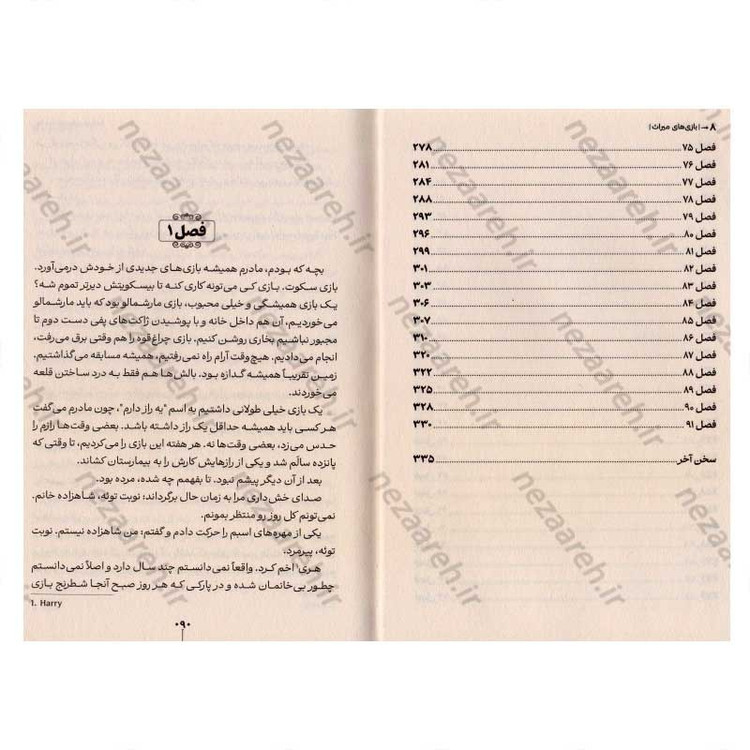 ۸ → | بازی‌های میراث |
فصل ۷۵ ........ ۲۷۸
فصل ۷۶ ........ ۲۸۱
فصل ۷۷ ........ ۲۸۴
فصل ۷۸ ........ ۲۸۸
فصل ۷۹ ........ ۲۹۳
فصل ۸۰ ........ ۲۹۶
فصل ۸۱ ........ ۲۹۹
فصل ۸۲ ........ ۳۰۱
فصل ۸۳ ........ ۳۰۳
فصل ۸۴ ........ ۳۰۶
فصل ۸۵ ........ ۳۰۷
فصل ۸۶ ........ ۳۱۰
فصل ۸۷ ........ ۳۲۰
فصل ۸۸ ........ ۳۲۲
فصل ۸۹ ........ ۳۲۵
فصل ۹۰ ........ ۳۲۸
فصل ۹۱ ........ ۳۳۰
سخن آخر ........ ۳۳۵
فصل ۱
بچه که بودم، مادرم همیشه بازی‌های جدیدی از خودش درمی‌آورد.
بازی سکوت. بازی کی می‌تونه کاری کنه تا بیسکویتش دیرتر تموم شه؟
یک بازی همیشگی و خیلی محبوب، بازی مارشمالو بود که باید مارشمالو
می‌خوردیم، آن هم داخل خانه و با پوشیدن ژاکت‌های پفی دست دوم تا
مجبور نباشیم بخاری روشن کنیم. بازی چراغ‌قوه را هم وقتی برق می‌رفت،
انجام می‌دادیم. هیچ‌وقت آرام راه نمی‌رفتیم، همیشه مسابقه می‌گذاشتیم.
زمین تقریباً همیشه گدازه بود. بالش‌ها هم فقط به درد ساختن قلعه
می‌خوردند.
یک بازی خیلی طولانی داشتیم به اسم "یه راز دارم"، چون مادرم می‌گفت
هر کسی باید همیشه حداقل یک راز داشته باشد. بعضی وقت‌ها رازم را
حدس می‌زد، بعضی وقت‌ها نه. هر هفته این بازی را می‌کردیم، تا وقتی که
پانزده سالم شد و یکی از رازهایش کارش را به بیمارستان کشاند.
بعد از آن دیگر پیشم نبود. تا بفهمم چه شده، مرده بود.
صدای خش‌داری مرا به زمان حال برگرداند: نوبت توئه، شاهزاده خانم.
نمی‌تونم کل روز رو منتظر بمونم.
یکی از مهره‌های اسبم را حرکت دادم و گفتم: من شاهزاده نیستم. نوبت
توئه، پیرمرد.
هری¹ اخم کرد. واقعاً نمی‌دانستم چند سال دارد و اصلاً نمی‌دانستم
چطور بی‌خانمان شده و در پارکی که هر روز صبح آنجا شطرنج بازی
1. Harry
۰۹۰
nezaareh.ir
nezaareh.ir
nezaareh.ir
nezaareh.ir
nezaareh.ir
nezaareh.ir
nezaareh.ir
nezaareh.ir
nezaareh.ir